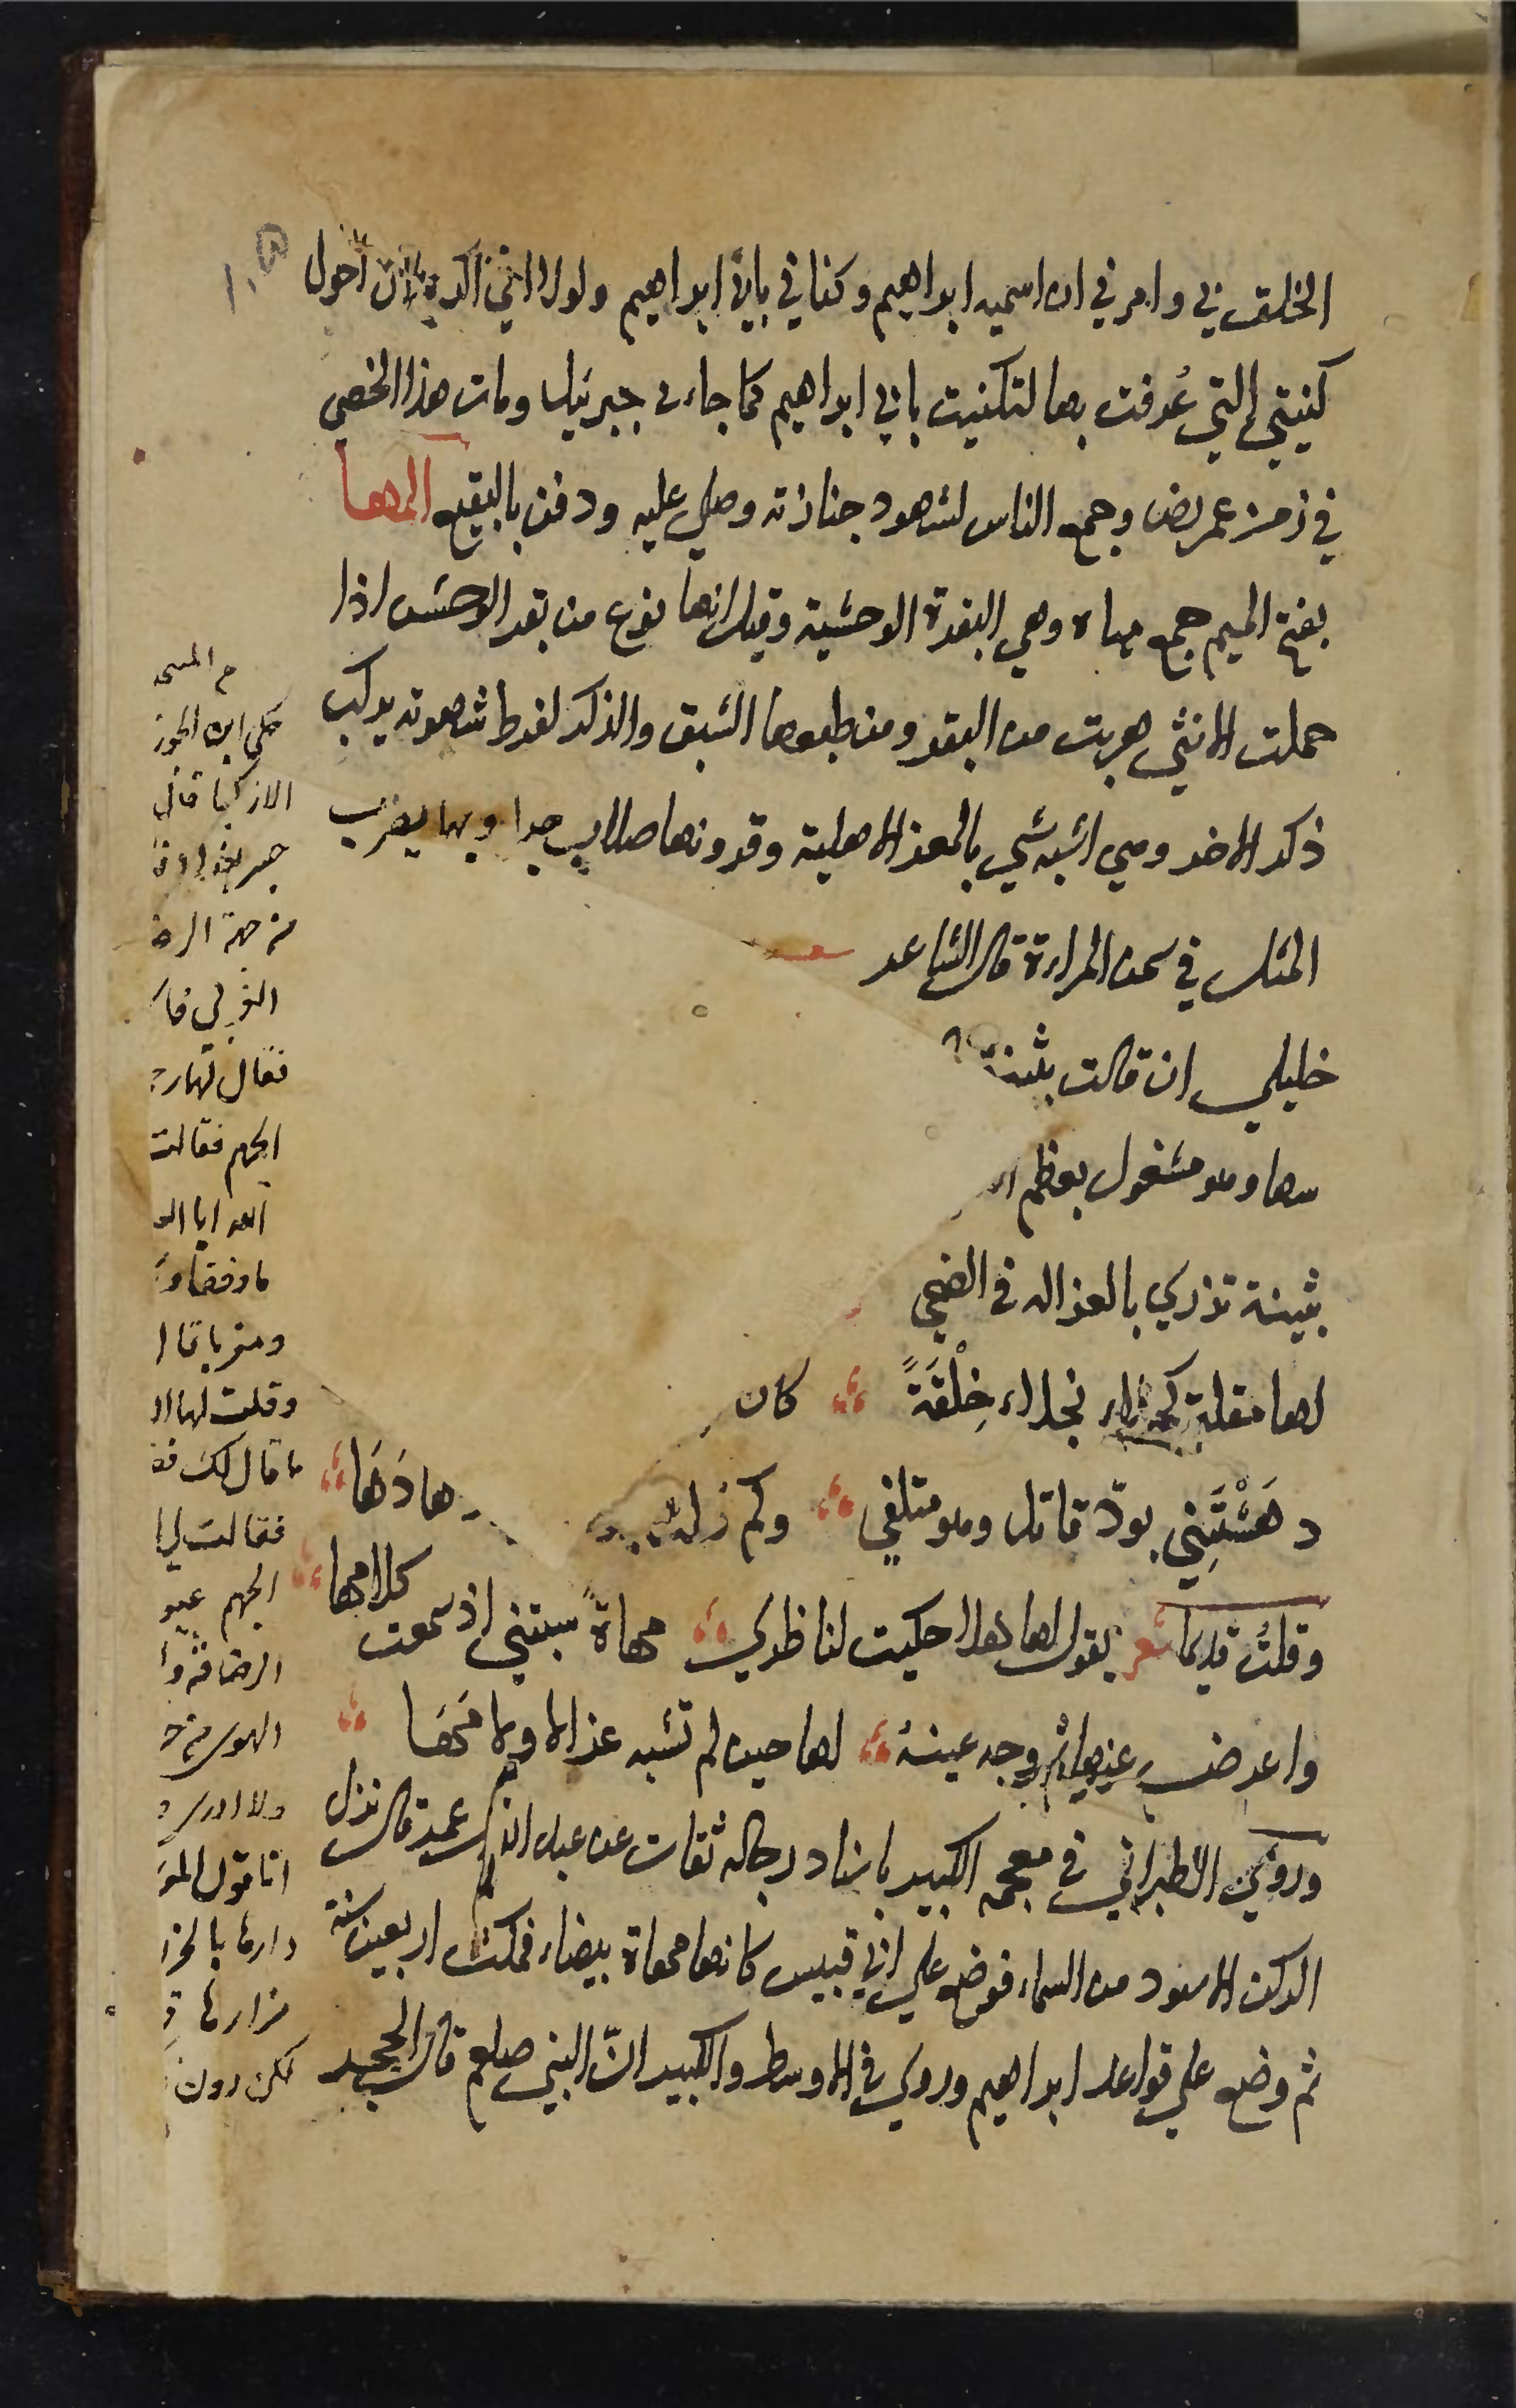 الخلق بي وامرني ان اسميه ابراهيم وكناني بابي ابراهيم ولولا اني اكره ان احول
كنيتي التي عُرفت بها لتكنيت بابي ابراهيم كما جاء في جبرئيل ومات هذا الخصي
في زمن عمر رض وجمع الناس لشهود جنازته وصلي عليه ودفن بالبقيع المها
بفتح الميم جمع مهاة وهي البقرة الوحشية وقيل انها نوع من بقر الوحش اذا
حملت الانثي هربت من البقر ومن طبعها الشبق والذكر لفرط شهوته يركب
ذكر الاخر وهي اشبه شي بالمعز الاهلية وقرونها صلاب جدا وبها يضرب
المثل في سمن المراءة قال الشاعر شعر
خليلي ان قالت بثينة
سها وهو مشغول بعظم
بثينة تزري بالغزاله في الضحي
لها مقلة كحلاء نجلاء خِلْقَةً كان
دهَشْتَنِي بودّ قاتل وهو متلفي وكم
وقلت قديما شعر يقول لها هلا حكيت لناظري مهاةً سبتني اذ سمعت كلامها
واعرض عنها وجه عينه لها حين لم تشبه غزالا ولا مَهَا
وروي الطبراني في معجمه الكبير باسناد رجاله ثقات عن عبد الله بن عمر قال نزل
الركن الاسود من السماء فوضع علي ابي قبيس كانها مهاة بيضاء فمكث اربعين سنة
ثم وضع علي قواعد ابراهيم وروي في الاوسط والكبير انّ النبي صلعم قال الحجر
حكي ابن الجوز
الازكيا قال
جسر بغداد
من جهة الر
فقال لها ر
الجهم فقالت
ومغربا
وقلت لها
ما قال لك
فقالت لي
الجهم عيو
الرصافة
دارها بالحز
مزارها
لكن دون